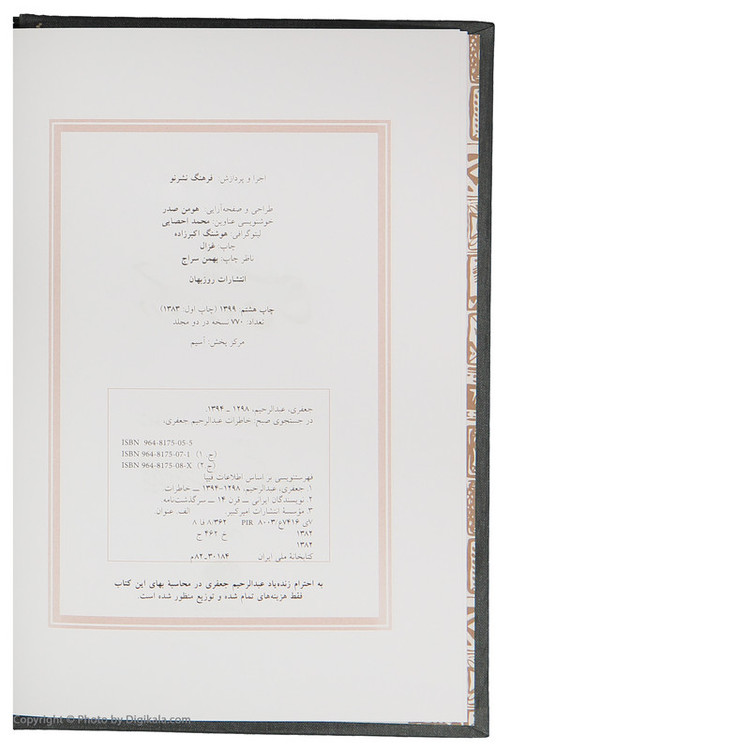 اجرا و پردازش: فرهنگ نشرنو
طراحی و صفحه‌آرایی: هومن صدر
خوشنویسی عناوین: محمد احصایی
لیتوگرافی: هوشنگ اکبرزاده
چاپ: غزال
ناظر چاپ: بهمن سراج
انتشارات روزبهان
چاپ هشتم: ۱۳۹۹ (چاپ اول: ۱۳۸۳)
تعداد: ۷۷۰ نسخه در دو مجلد
مرکز پخش: آسیم
جعفری، عبدالرحیم، ۱۲۹۸ ـ ۱۳۹۴.
در جستجوی صبح: خاطرات عبدالرحیم جعفری.
ISBN 964-8175-05-5
ISBN 964-8175-07-1 (ج. ۱)
ISBN 964-8175-08-X (ج ۲)
فهرستنویسی بر اساس اطلاعات فیپا
۱. جعفری، عبدالرحیم، ۱۲۹۸-۱۳۹۴ ــ خاطرات.
۲. نویسندگان ایرانی ــ قرن ۱۴ ــ سرگذشت‌نامه.
۳. مؤسسۀ انتشارات امیرکبیر. الف. عنوان.
۷ی ۷۴۱۶ع/ PIR ۸۰۰۳ ۸/۳۶۲ فا ۸
۱۳۸۲ خ ۴۶۲ ج
۱۳۸۲
کتابخانۀ ملی ایران ۳۰۱۸۴ـ۸۲م
به احترام زنده‌یاد عبدالرحیم جعفری در محاسبۀ بهای این کتاب
فقط هزینه‌های تمام شده و توزیع منظور شده است.
Copyright © Photo by Digikala.com